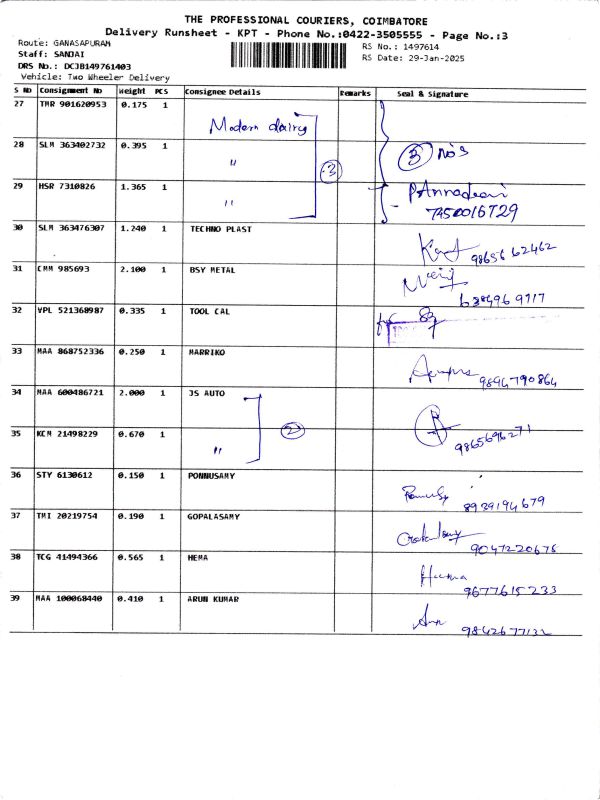 THE PROFESSIONAL COURIERS, COIMBATORE
Delivery Runsheet - KPT - Phone No.:0422-3505555 - Page No.:3
Route: GANASAPURAM
RS No.: 1497614
Staff: SANJAI
RS Date: 29-Jan-2025
DRS No.: DCJB149761403
Vehicle: Two Wheeler Delivery
S No Consignment No Weight PCS Consignee Details Remarks Seal & Signature
27 TMR 901620953 0.175 1 Modern dairy
28 SLM 363402732 0.395 1 " 3 3 Nos
29 HSR 7310826 1.365 1 "
30 SLM 363476307 1.240 1 TECHNO PLAST 98656 62462
31 CMM 985693 2.100 1 BSY METAL
32 VPL 521368987 0.335 1 TOOL CAL
33 MAA 868752336 0.250 1 MARRIKO 9894790864
34 MAA 600486721 2.000 1 JS AUTO 2
35 KCM 21498229 0.670 1 " 9865696271
36 STY 6130612 0.150 1 PONNUSAMY 8939194679
37 TMI 20219754 0.190 1 GOPALASAMY 9047220678
38 TCG 41494366 0.565 1 HEMA Hema 9677615233
39 MAA 100068440 0.410 1 ARUN KUMAR